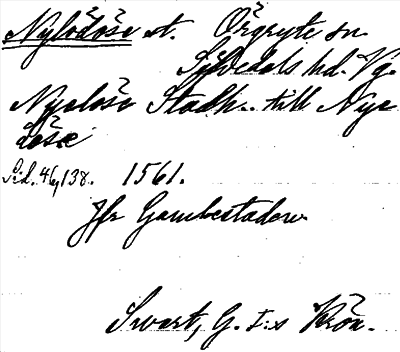 Nylödöse st. Örgryte sn
Sävedals hd. Vg.
Nyeløse Stadh.. till Nye
løsæ
Sid. 46, 138. 1561.
Jfr Gambestaden
Swart, G. I:s Krön.